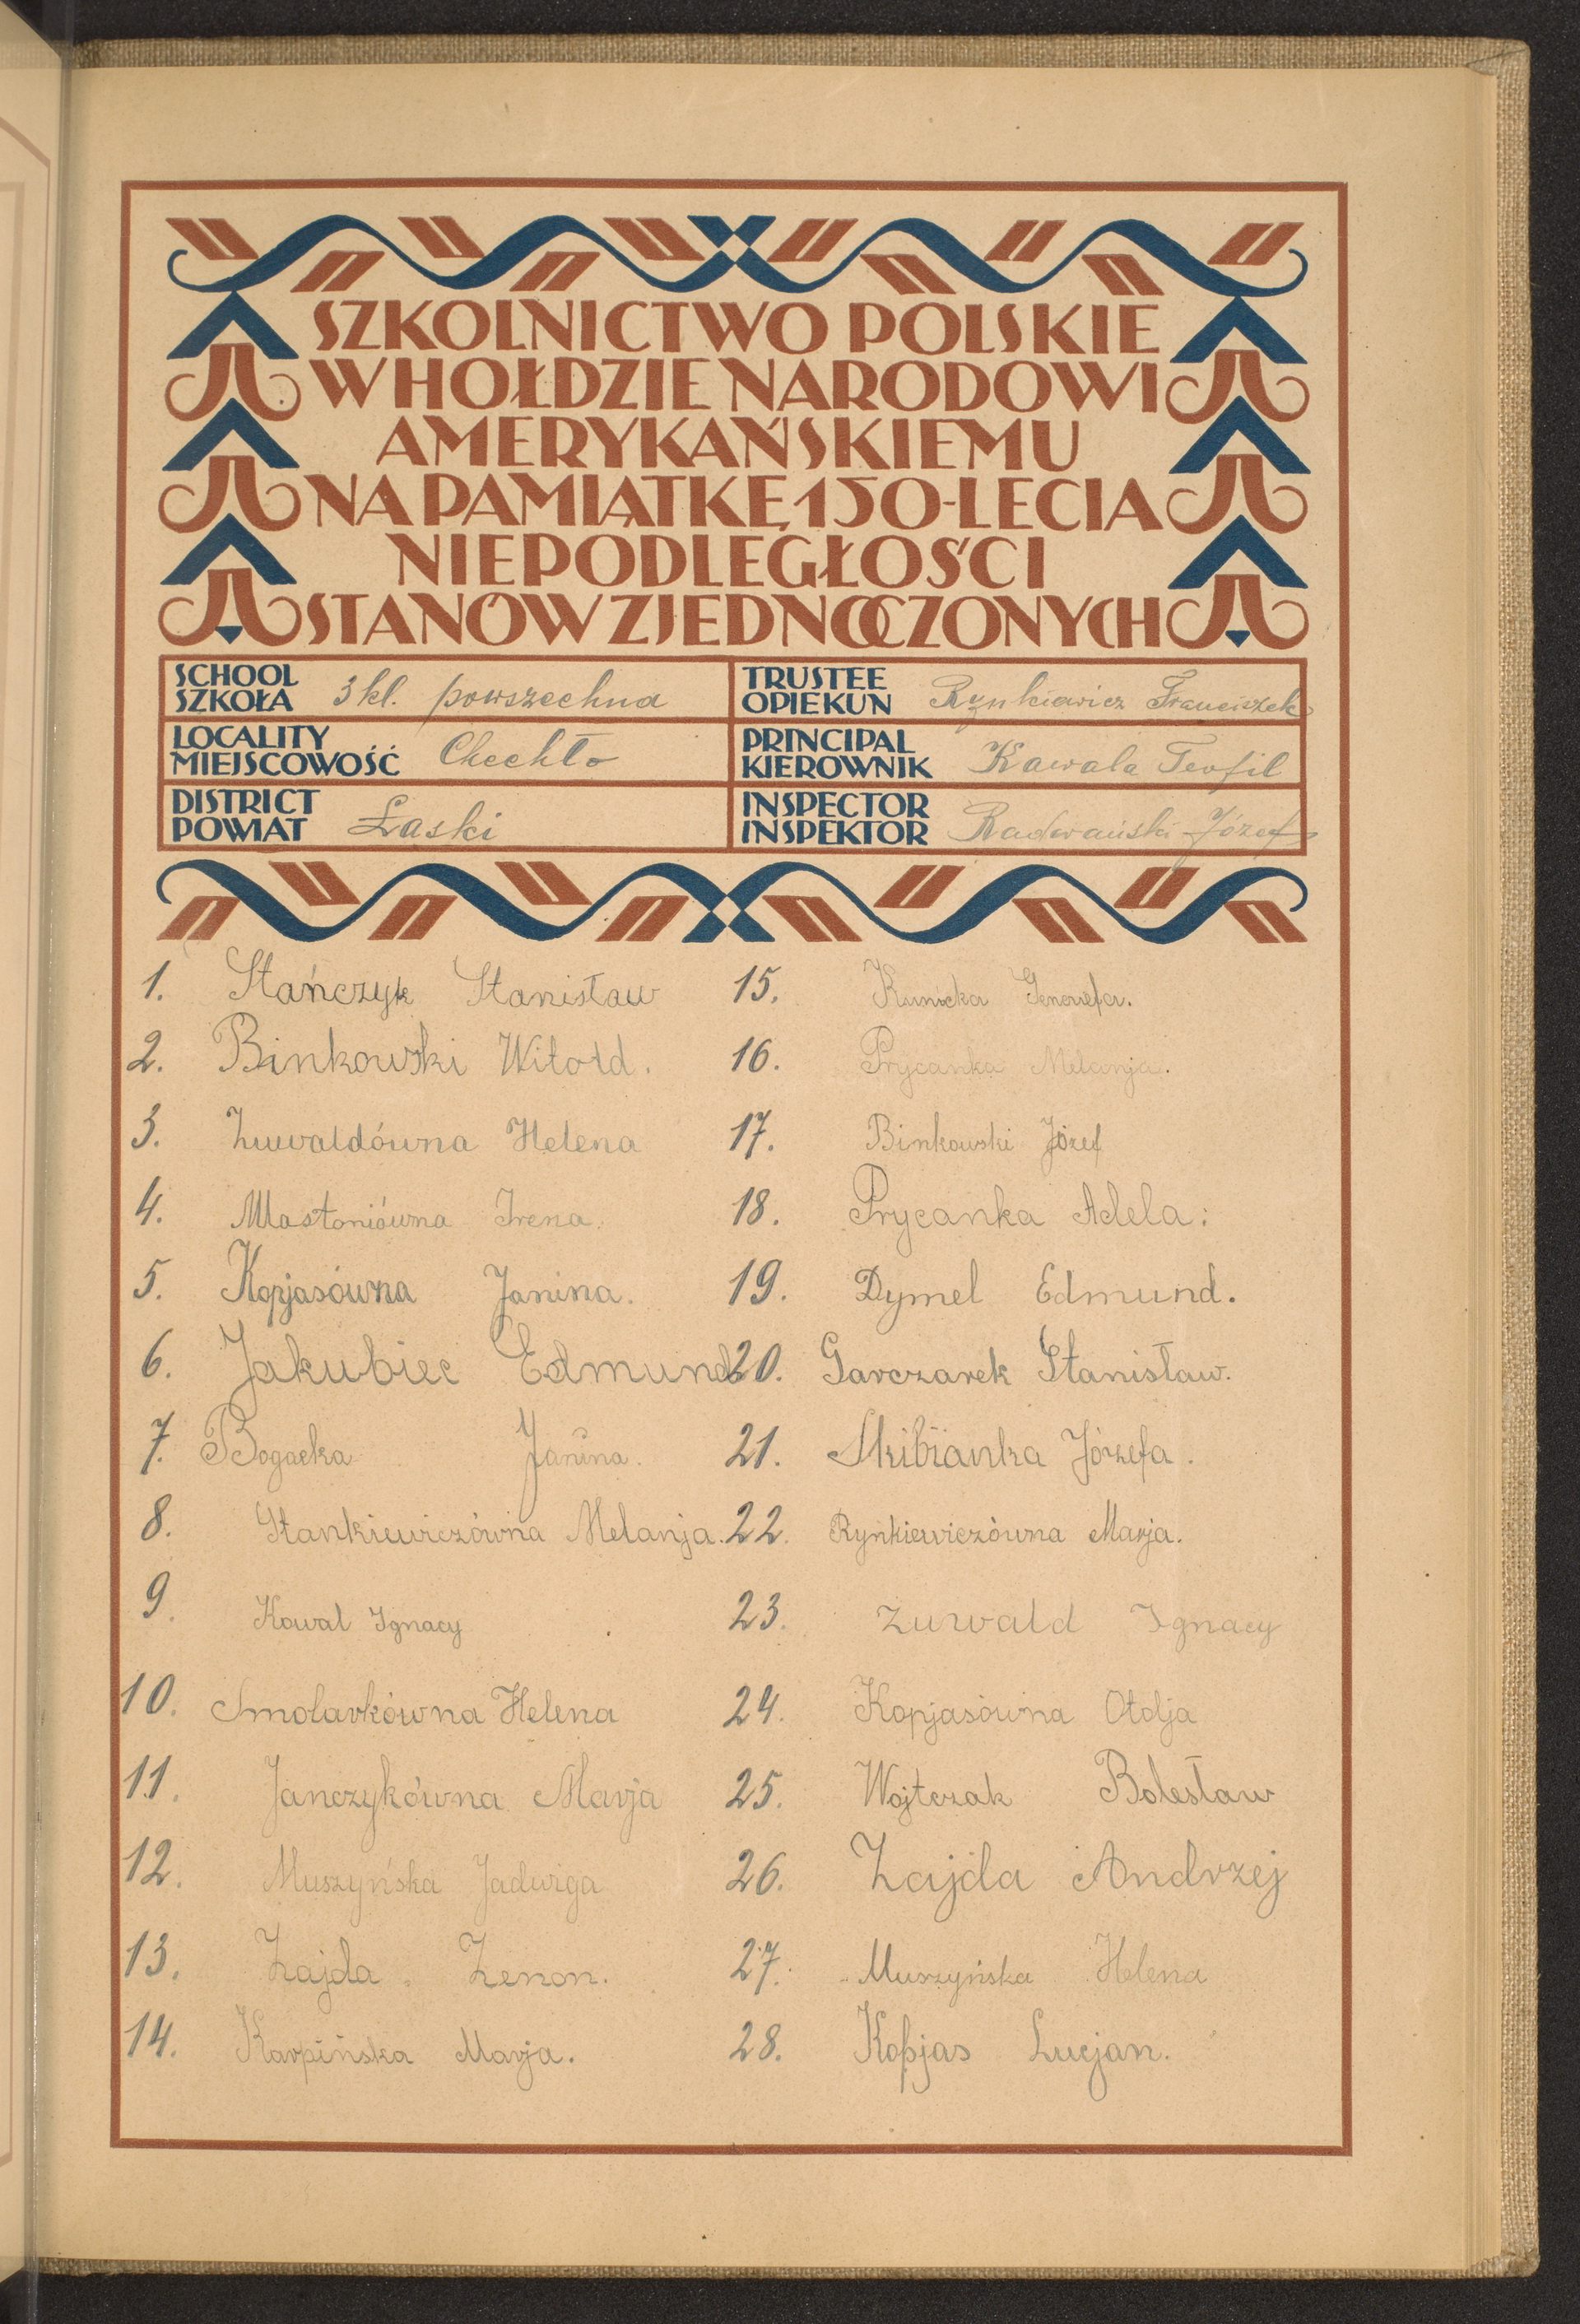 SZKOLNICTWO POLSKIE
W HOŁDZIE NARODOWI
AMERYKAŃSKIEMU
NA PAMIĄTKĘ 150-LECIA
NIEPODLEGŁOŚCI
STANÓW ZJEDNOCZONYCH
SCHOOL
SZKOŁA 3 kl. powszechna
TRUSTEE
OPIEKUN Rynkiewicz Franciszek
LOCALITY
MIEJSCOWOŚĆ Chechło
PRINCIPAL
KIEROWNIK Kawala Teofil
DISTRICT
POWIAT Łaski
INSPECTOR
INSPEKTOR Radwański Józef
1. Stańczyk Stanisław
2. Binkowski Witold.
3. Zuwaldówna Helena
4. Mastoniówna Irena.
5. Kopjasówna Janina.
6. Jakubiec Edmund
7. Bogacka Janina.
8. Stankiewiczówna Melanja.
9. Kowal Ignacy
10. Smolarkówna Helena
11. Janczykówna Marja
12. Muszyńska Jadwiga
13. Zajda Zenon.
14. Karpińska Marja.
15. Kunicka Genowefa.
16. Prycanka Melanja.
17. Binkowski Józef
18. Prycanka Adela:
19. Dymel Edmund.
20. Garczarek Stanisław.
21. Skibianka Józefa.
22. Rynkiewiczówna Marja.
23. Zuwald Ignacy
24. Kopjasówna Otolja
25. Wojtczak Bolesław
26. Zajda Andrzej
27. Muszyńska Helena
28. Kopjas Lucjan.